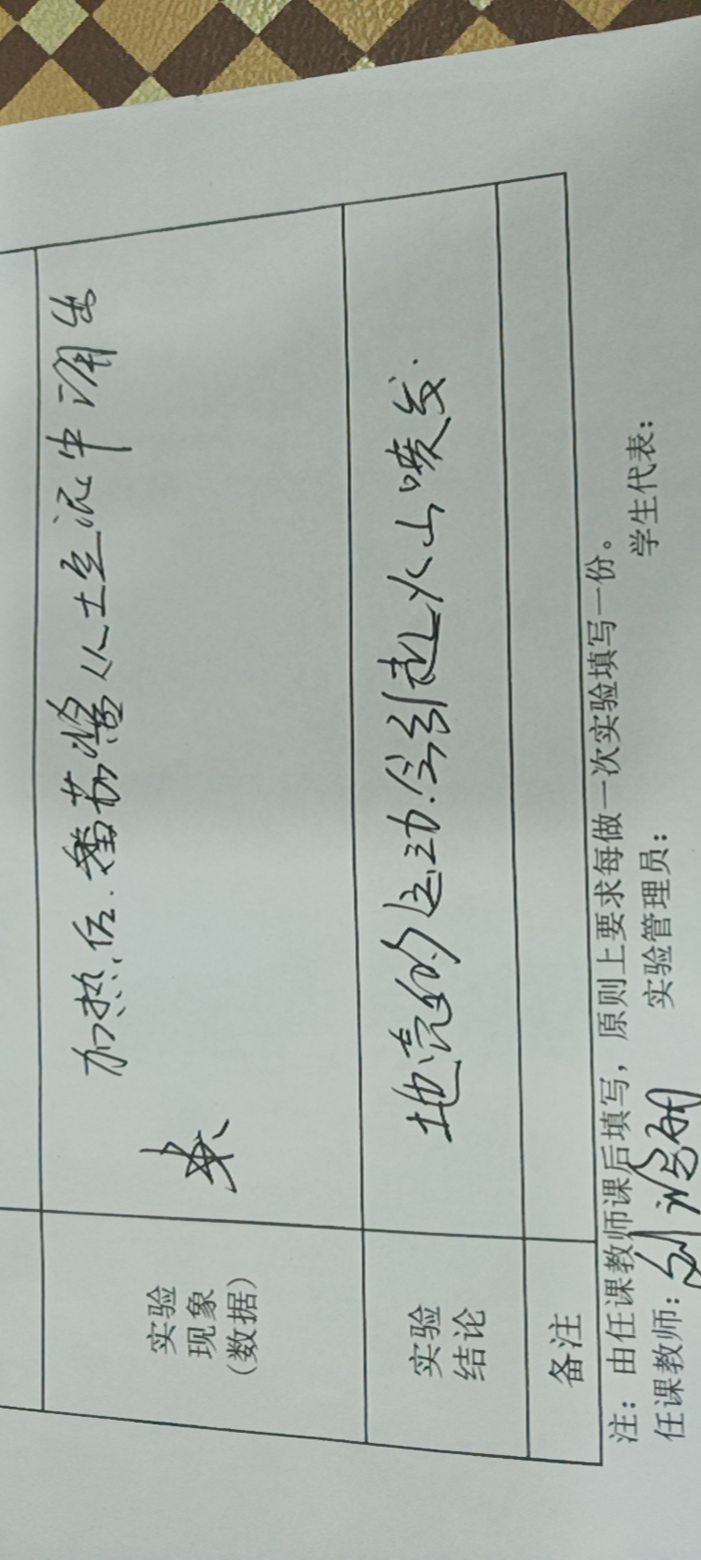 实验
现象
(数据)
加热后.番茄酱从土豆泥中涌出
来
实验
结论
地壳的运动.会引起火山喷发.
备注
注：由任课教师课后填写，原则上要求每做一次实验填写一份。
任课教师： 实验管理员： 学生代表：